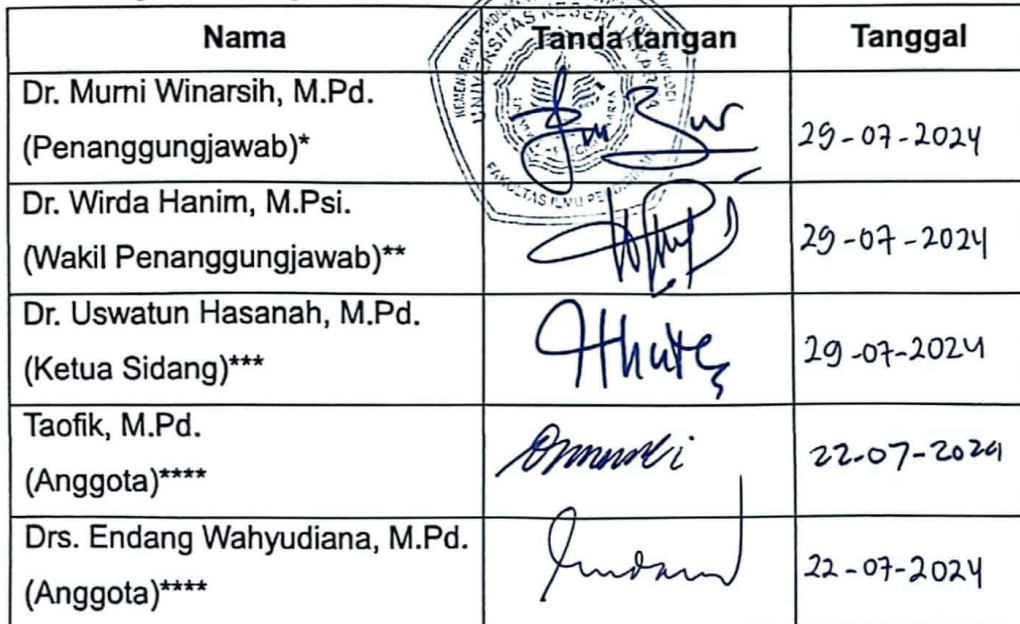 Nama Tanda tangan Tanggal
Dr. Murni Winarsih, M.Pd.
(Penanggungjawab)* 29-07-2024
Dr. Wirda Hanim, M.Psi.
(Wakil Penanggungjawab)** 29-07-2024
Dr. Uswatun Hasanah, M.Pd.
(Ketua Sidang)*** 29-07-2024
Taofik, M.Pd.
(Anggota)**** 22-07-2024
Drs. Endang Wahyudiana, M.Pd.
(Anggota)**** 22-07-2024
UNIVERSITAS NEGERI JAKARTA
FAKULTAS ILMU PENDIDIKAN